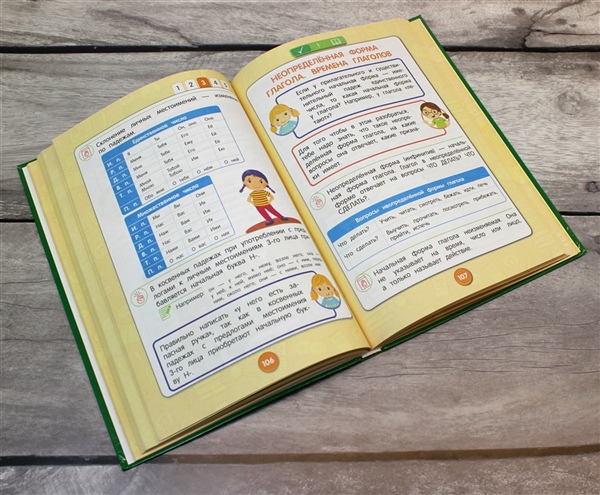 1 2 3 4 5
Склонение личных местоимений —
по падежам.
Единственное число
И. п. Я Ты Он, оно Она
Р. п. Меня Тебя Его Её
Д. п. Мне Тебе Ему Ей
В. п. Меня Тебя Его Её
Т. п.
П. п. Обо мне О тебе О нём О ней
Множественное число
И. п. Мы Вы Они
Р. п. Нас Вас Их
Д. п. Нам Вам Им
В. п. Нас Вас Их
Т. п. Нами Вами Ими
П. п. О нас О вас О них
В косвенных падежах при употреблении с пред-
логами к личным местоимениям 3-го лица при-
бавляется начальная буква Н-.
Например:
Правильно написать «у него есть за-
пасная ручка», так как в косвенных
падежах с предлогами местоимения
3-го лица приобретают начальную бук-
ву Н-.
106
НЕОПРЕДЕЛЁННАЯ ФОРМА
ГЛАГОЛА. ВРЕМЕНА ГЛАГОЛОВ
Если у прилагательного и существи-
тельного начальная форма — име-
нительный падеж единственного
числа, то какая начальная форма
у глагола? Например, у глагола «ле-
тают»?
Для того чтобы в этом разобраться,
тебе надо знать, что такое неопре-
делённая форма глагола, на какие
вопросы она отвечает, какие призна-
ки имеет.
Неопределённая форма (инфинитив) — началь-
ная форма глагола. Глагол в неопределённой
форме отвечает на вопросы ЧТО ДЕЛАТЬ? ЧТО
СДЕЛАТЬ?
Вопросы неопределённой формы глагола
Что делать? Учить, читать, смотреть, бежать, идти, печь
Что сделать? Выучить, прочитать, посмотреть, прибежать,
прийти, испечь
Начальная форма глагола неизменяемая. Она
не указывает на время, число или лицо,
а только называет действие.
107